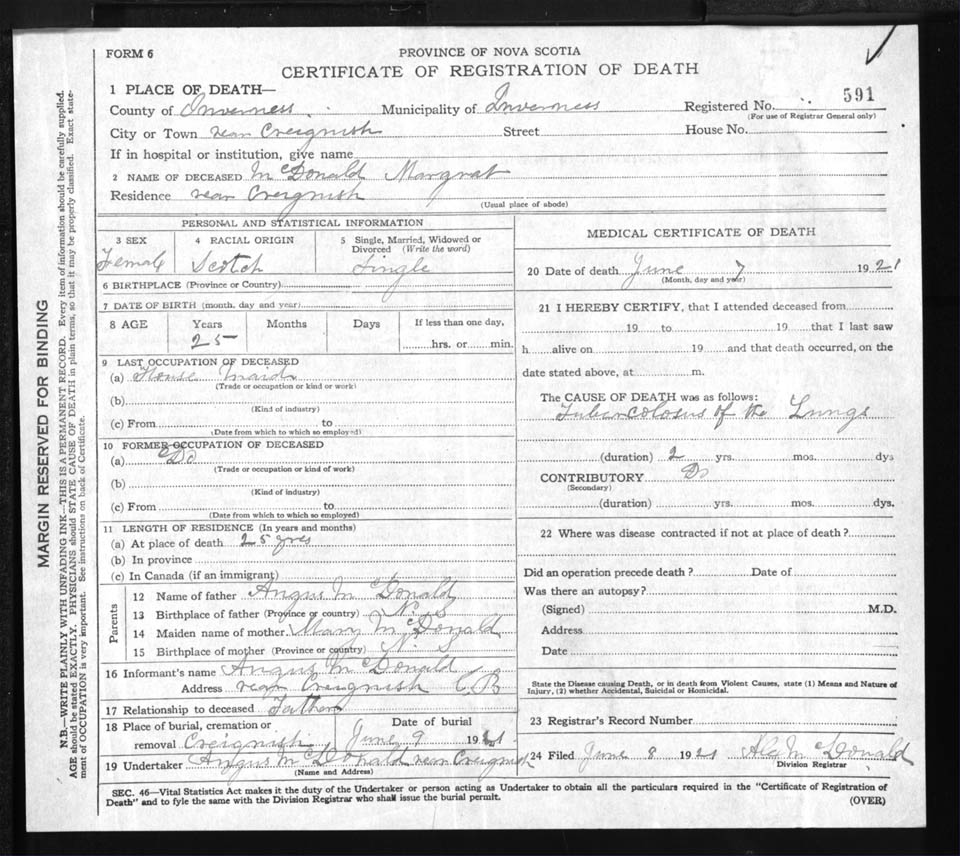 FORM 6
PROVINCE OF NOVA SCOTIA
CERTIFICATE OF REGISTRATION OF DEATH
1 PLACE OF DEATH—
County of Inverness Municipality of Inverness Registered No. 591
(For use of Registrar General only)
City or Town rear Creignish Street House No.
If in hospital or institution, give name
2 NAME OF DECEASED McDonald Margrat
Residence rear Creignish
(Usual place of abode)
PERSONAL AND STATISTICAL INFORMATION
3 SEX 4 RACIAL ORIGIN 5 Single, Married, Widowed or
Divorced (Write the word)
Female Scotch Single
6 BIRTHPLACE (Province or Country)
7 DATE OF BIRTH (month, day and year)
8 AGE Years Months Days If less than one day,
25 hrs. or min.
9 LAST OCCUPATION OF DECEASED
(a) House maid
(Trade or occupation or kind or work)
(b)
(Kind of industry)
(c) From to
(Date from which to which so employed)
10 FORMER OCCUPATION OF DECEASED
(a) Do
(Trade or occupation or kind of work)
(b)
(Kind of industry)
(c) From to
(Date from which to which so employed)
11 LENGTH OF RESIDENCE (In years and months)
(a) At place of death 25 yrs
(b) In province
(c) In Canada (if an immigrant)
Parents
12 Name of father Angus McDonald
13 Birthplace of father (Province or country) N. S
14 Maiden name of mother Mary McDonald
15 Birthplace of mother (Province or country) N. S
16 Informant's name Angus McDonald
Address rear Creignish C B
17 Relationship to deceased Father
18 Place of burial, cremation or Date of burial
removal Creignish June 9 1921
19 Undertaker Angus McDonald rear Creignish
(Name and Address)
MEDICAL CERTIFICATE OF DEATH
20 Date of death June 7 1921
(Month, day and year)
21 I HEREBY CERTIFY, that I attended deceased from
19 to 19 that I last saw
h alive on 19 and that death occurred, on the
date stated above, at m.
The CAUSE OF DEATH was as follows:
Tubercolosus of the Lungs
(duration) 2 yrs. mos. dys
CONTRIBUTORY Do
(Secondary)
(duration) yrs. mos. dys.
22 Where was disease contracted if not at place of death?
Did an operation precede death? Date of
Was there an autopsy?
(Signed) M.D.
Address
Date
State the Disease causing Death, or in death from Violent Causes, state (1) Means and Nature of
Injury, (2) whether Accidental, Suicidal or Homicidal.
23 Registrar's Record Number
24 Filed June 8 1921 Alex McDonald
Division Registrar
SEC. 46—Vital Statistics Act makes it the duty of the Undertaker or person acting as Undertaker to obtain all the particulars required in the "Certificate of Registration of
Death" and to fyle the same with the Division Registrar who shall issue the burial permit. (OVER)
MARGIN RESERVED FOR BINDING
N.B.—WRITE PLAINLY WITH UNFADING INK—THIS IS A PERMANENT RECORD. Every item of information should be carefully supplied.
AGE should be stated EXACTLY. PHYSICIANS should STATE CAUSE OF DEATH in plain terms, so that it may be properly classified. Exact state-
ment of OCCUPATION is very important. See instructions on back of Certificate.